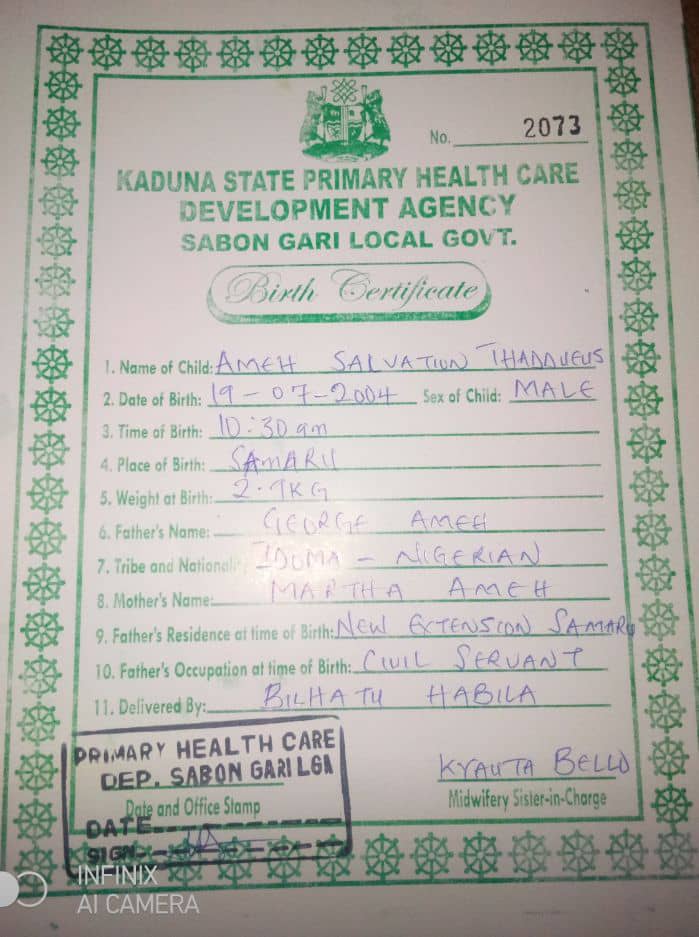 No. 2073
KADUNA STATE PRIMARY HEALTH CARE
DEVELOPMENT AGENCY
SABON GARI LOCAL GOVT.
Birth Certificate
1. Name of Child: AMEH SALVATION THADDUEUS
2. Date of Birth: 19-07-2004 Sex of Child: MALE
3. Time of Birth: 10:30 am
4. Place of Birth: SAMARU
5. Weight at Birth: 2.9KG
6. Father's Name: GEORGE AMEH
7. Tribe and Nationality IDOMA - NIGERIAN
8. Mother's Name: MARTHA AMEH
9. Father's Residence at time of Birth: NEW EXTENSION SAMARU
10. Father's Occupation at time of Birth: CIVIL SERVANT
11. Delivered By: BILHATU HABILA
PRIMARY HEALTH CARE
DEP. SABON GARI LGA
KYAUTA BELLO
Date and Office Stamp
Midwifery Sister-in-Charge
DATE
SIGN
INFINIX
AI CAMERA